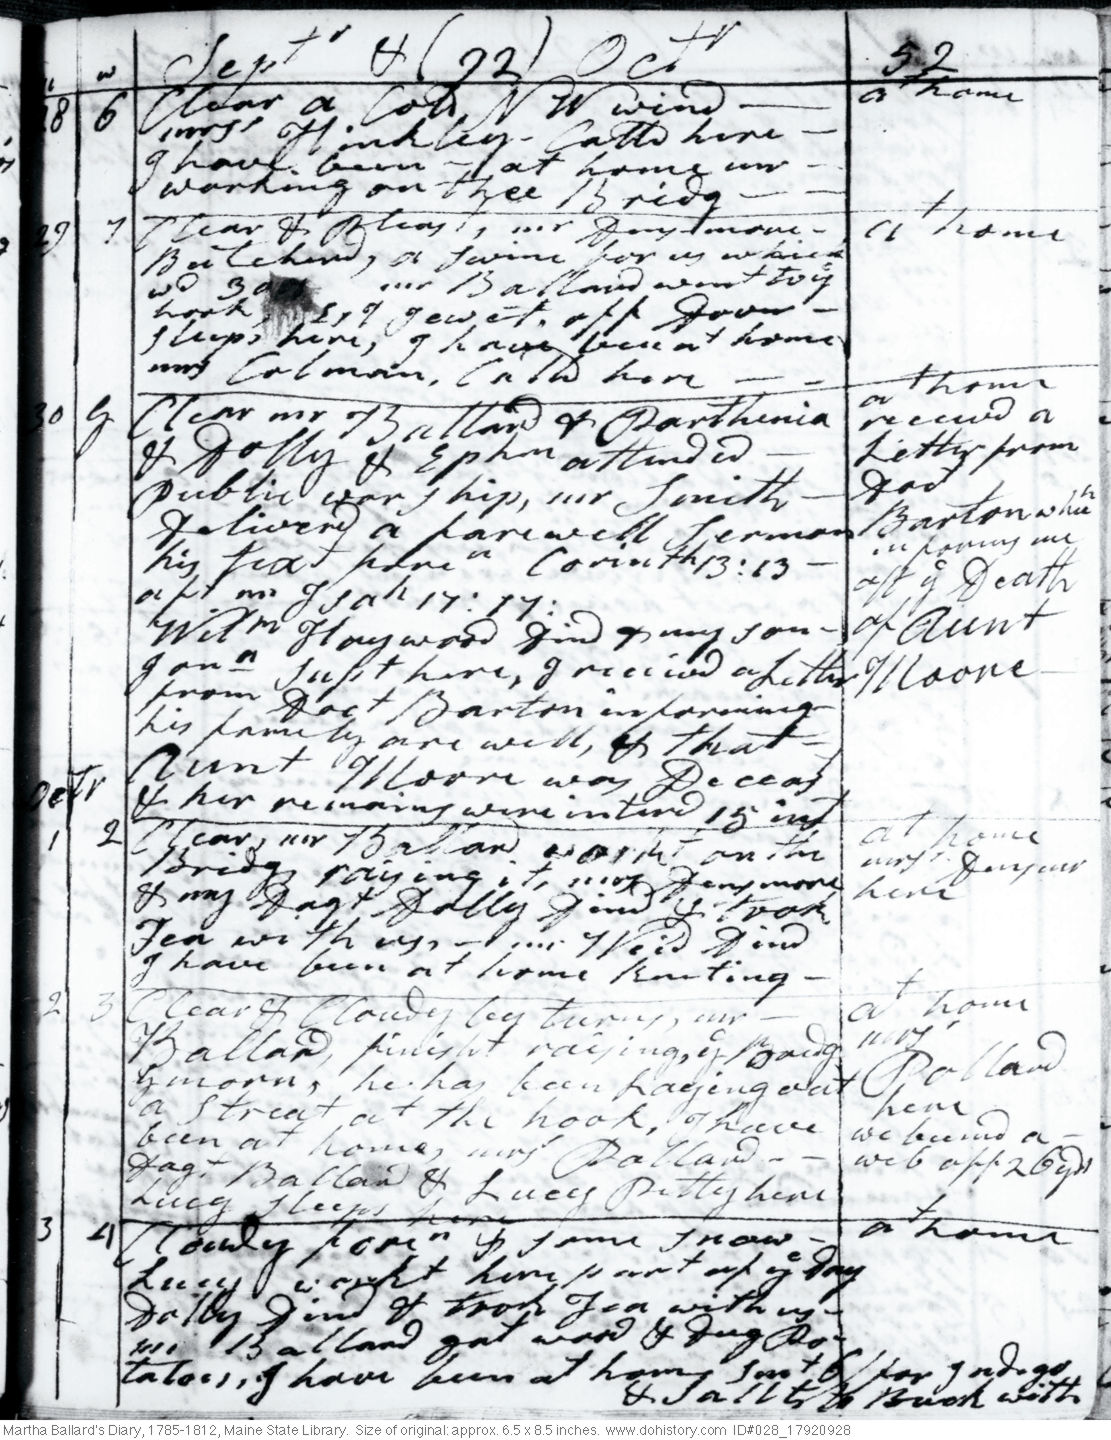 Septr & (92) Octr 52
28 6 Clear a Cold N W wind — at home
mrss Hinkley Calld here —
I have been — at home mr —
working on thee Bridg — —
29 7 Clear & pleast, mr Densmore — at home
Butcherd, a swine for us which
wd mr Ballard went to ye
hook, off Dover —
sleeps here, I have been at home
mrs Colman, Calld here — —
30 G Clear mr Ballard & Parthenia
& Dolly & Ephm attended —
publick worship, mr Smith —
Deliverd a farewell sermon
his text foren Corinth 13:13 —
aftn Isah 17:
Wilm Haywood Dind & my son —
Jonn supt here, I received a Letter
from Doct Barton informing
his family are well, & that —
Aunt Moore was Deceas
& her remains were interd 15 inst
at home
received a
Letter from
Doct
Barton which
informs me
of ye Death
of Aunt
Moore —
Octr
1 2 Clear, mr Ballard workt on the
Bridg raising it, mrs Densmore
& my Dagt Dolly Dind & took
Tea with us, — mr Dind
I have been at home knitting —
at home
mrss Densmr
here
2 3 Clear & Cloudy by turns, mr —
Ballard, finisht raising, ye Bridg
ye morn, he has been Laying out
a streat at the hook, I have
been at home, mrs Pollard — —
Dagt Ballard & Lucy Pitty here
Lucy sleeps here
at home
mrs
Pollard
here
we a —
web off 26 yds
3 4 Cloudy foren & some snow — at home
Lucy workt here part of ye Day
Dolly Dind & took Tea with us —
mr Ballard got wood & Dug Po-
tatoes, I have been at home sent 6/ for Indigo
& Salts to Buck with
Martha Ballard's Diary, 1785-1812, Maine State Library. Size of original:approx. 6.5 x 8.5 inches. www.dohistory.com ID#028_17920928